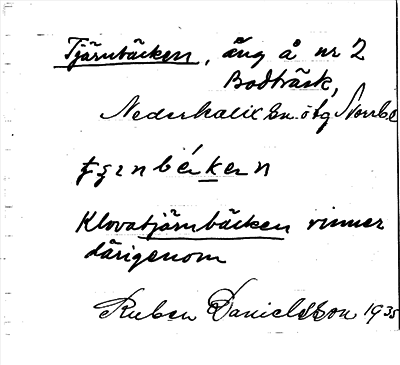 Tjärnbäcken, äng å nr 2
Bodträsk,
Nederkalix sn. o tg Norrb
bέkεn
Klovatjärnbäcken rinner
därigenom
Ruben Danielsson 1935